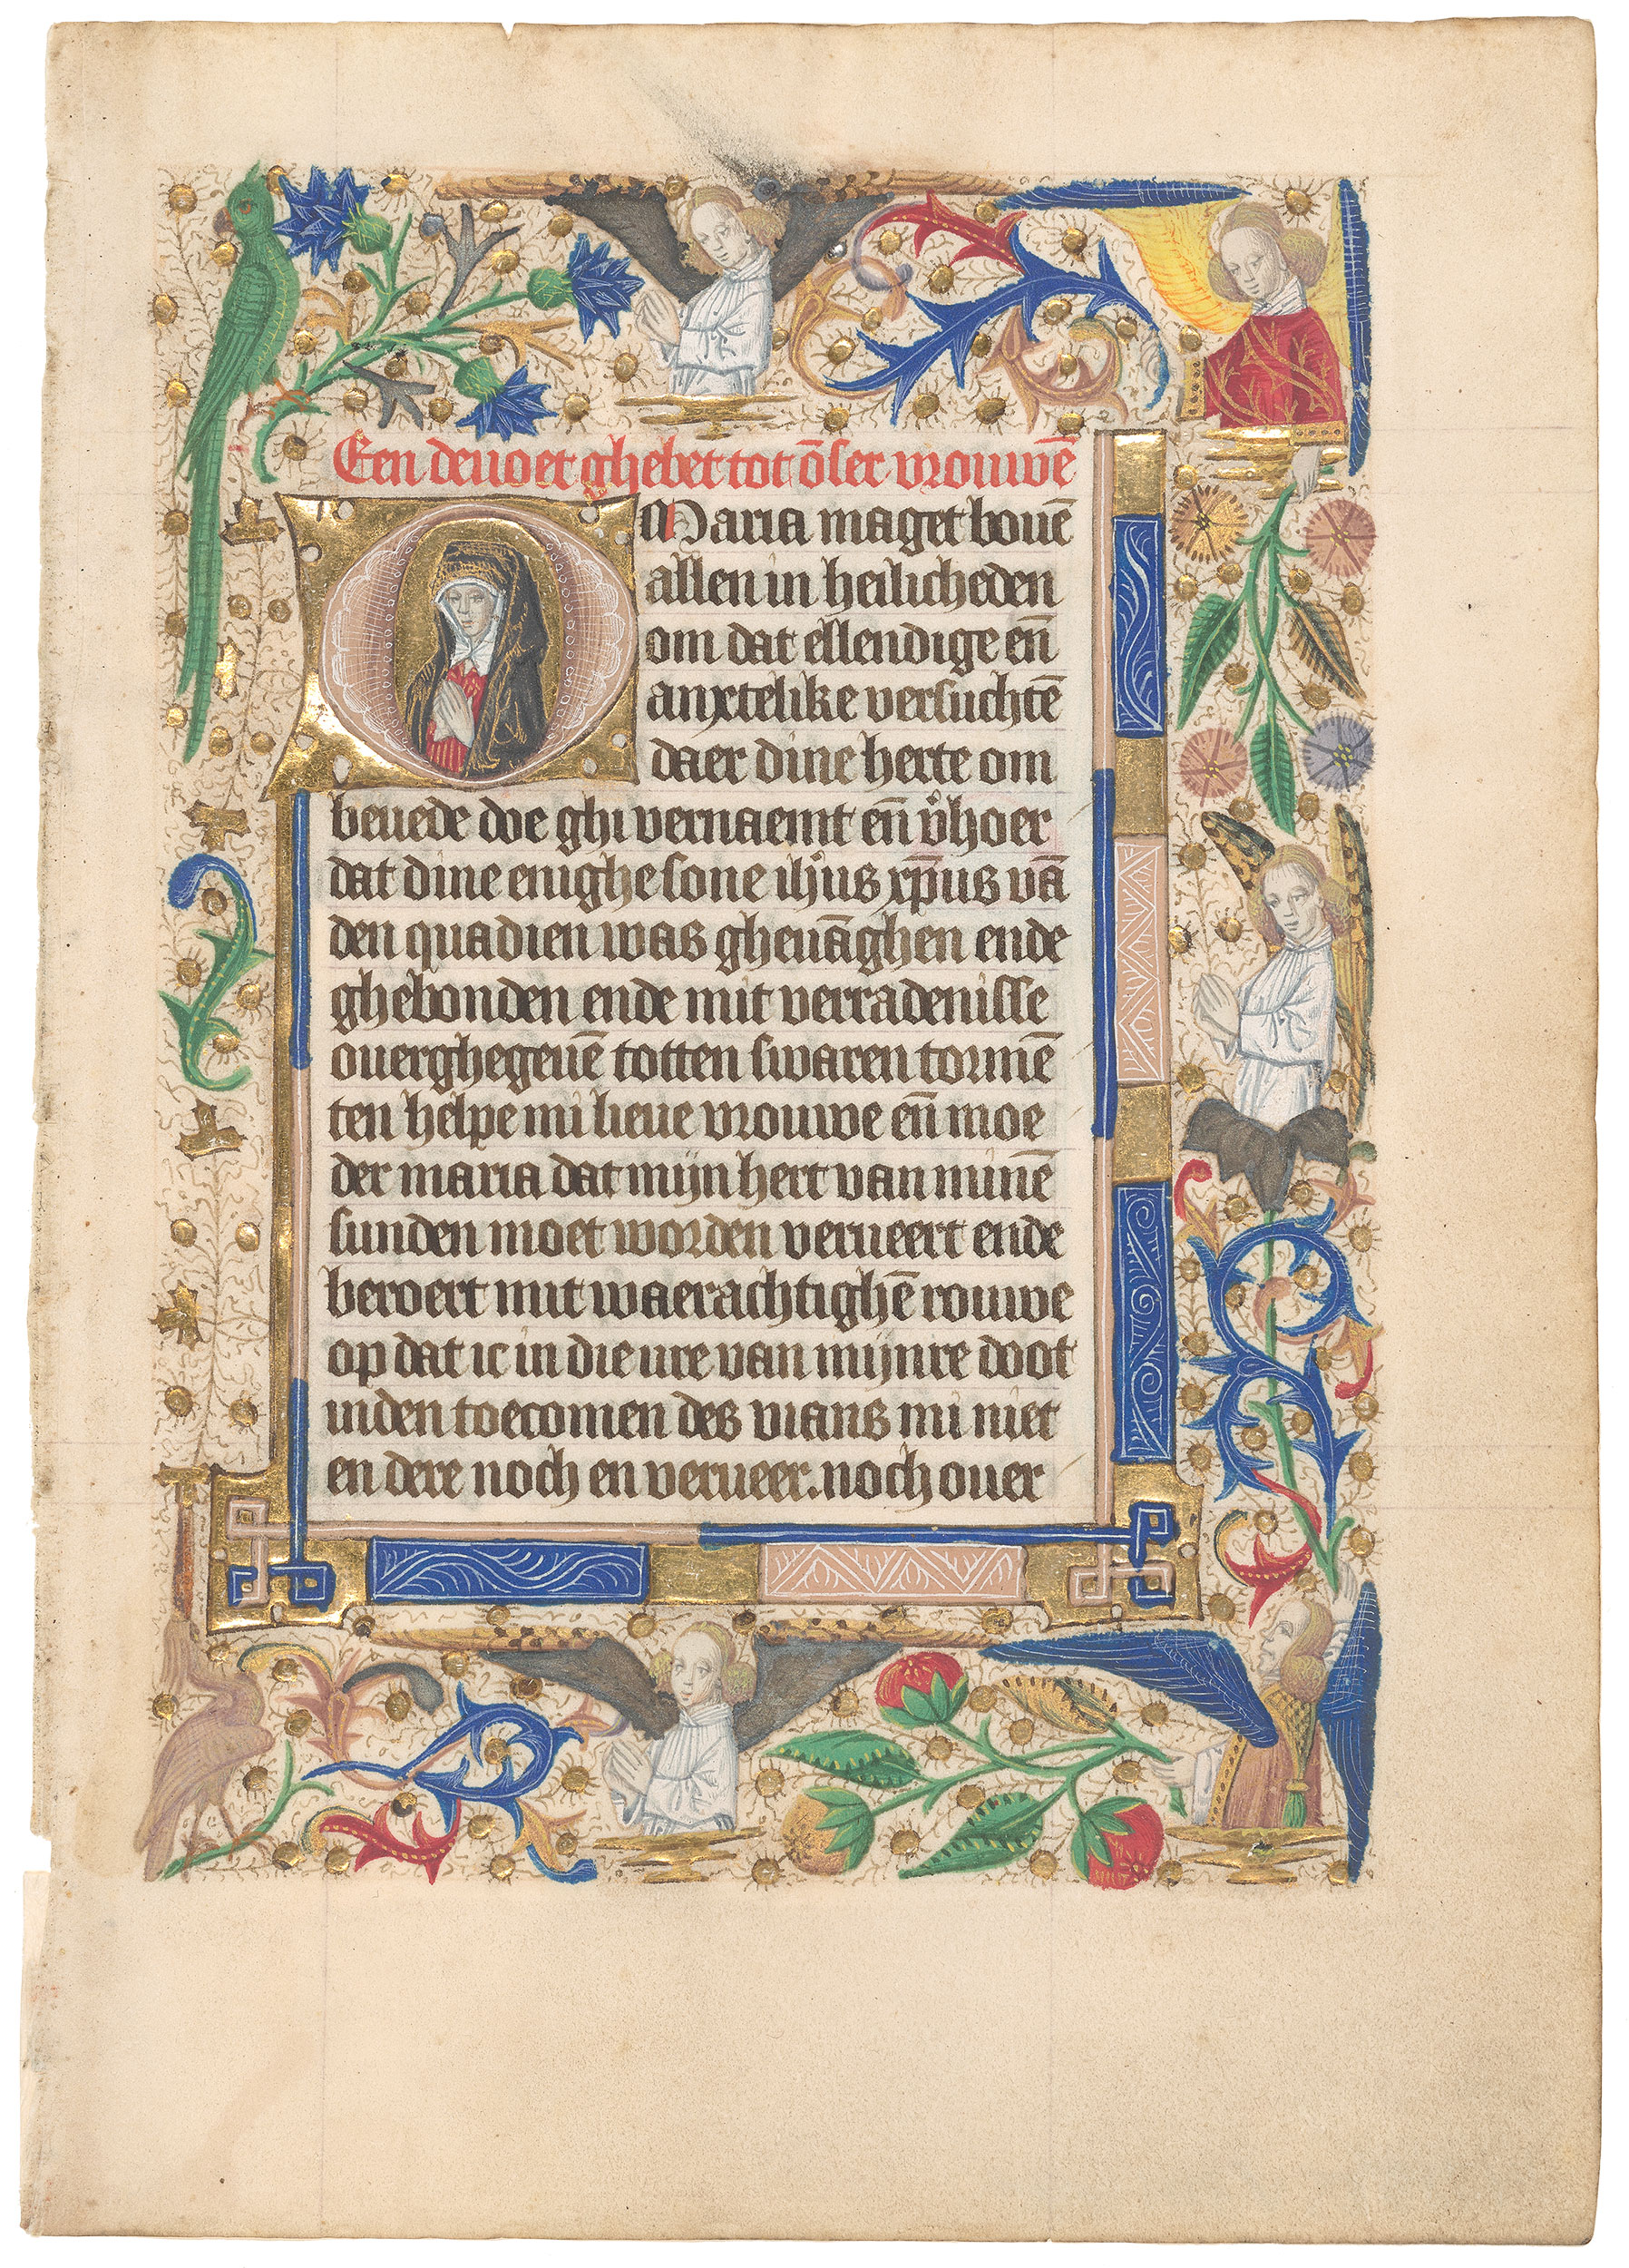 Een deuoet ghebet tot ōser vrouwē
O Maria maget bouē
allen in heilicheden
om dat ellendige eñ
anxtelike versuchtē
daer dine herte om
beuede doe ghi vernaemt eñ v͛hoer
dat dine enighe sone ih͛us xp̄us vā
den quadien was gheuāghen ende
ghebonden ende mit verradenisse
ouerghegeuē totten swaren tormē
ten helpe mi lieue vrouwe eñ moe
der maria dat mijn hert van minē
sunden moet worden verueert ende
beroert mit waerachtighē rouwe
op dat ic in die ure van mijnre doot
inden toecomen des vians mi niet
en dere noch en verueer. noch ouer